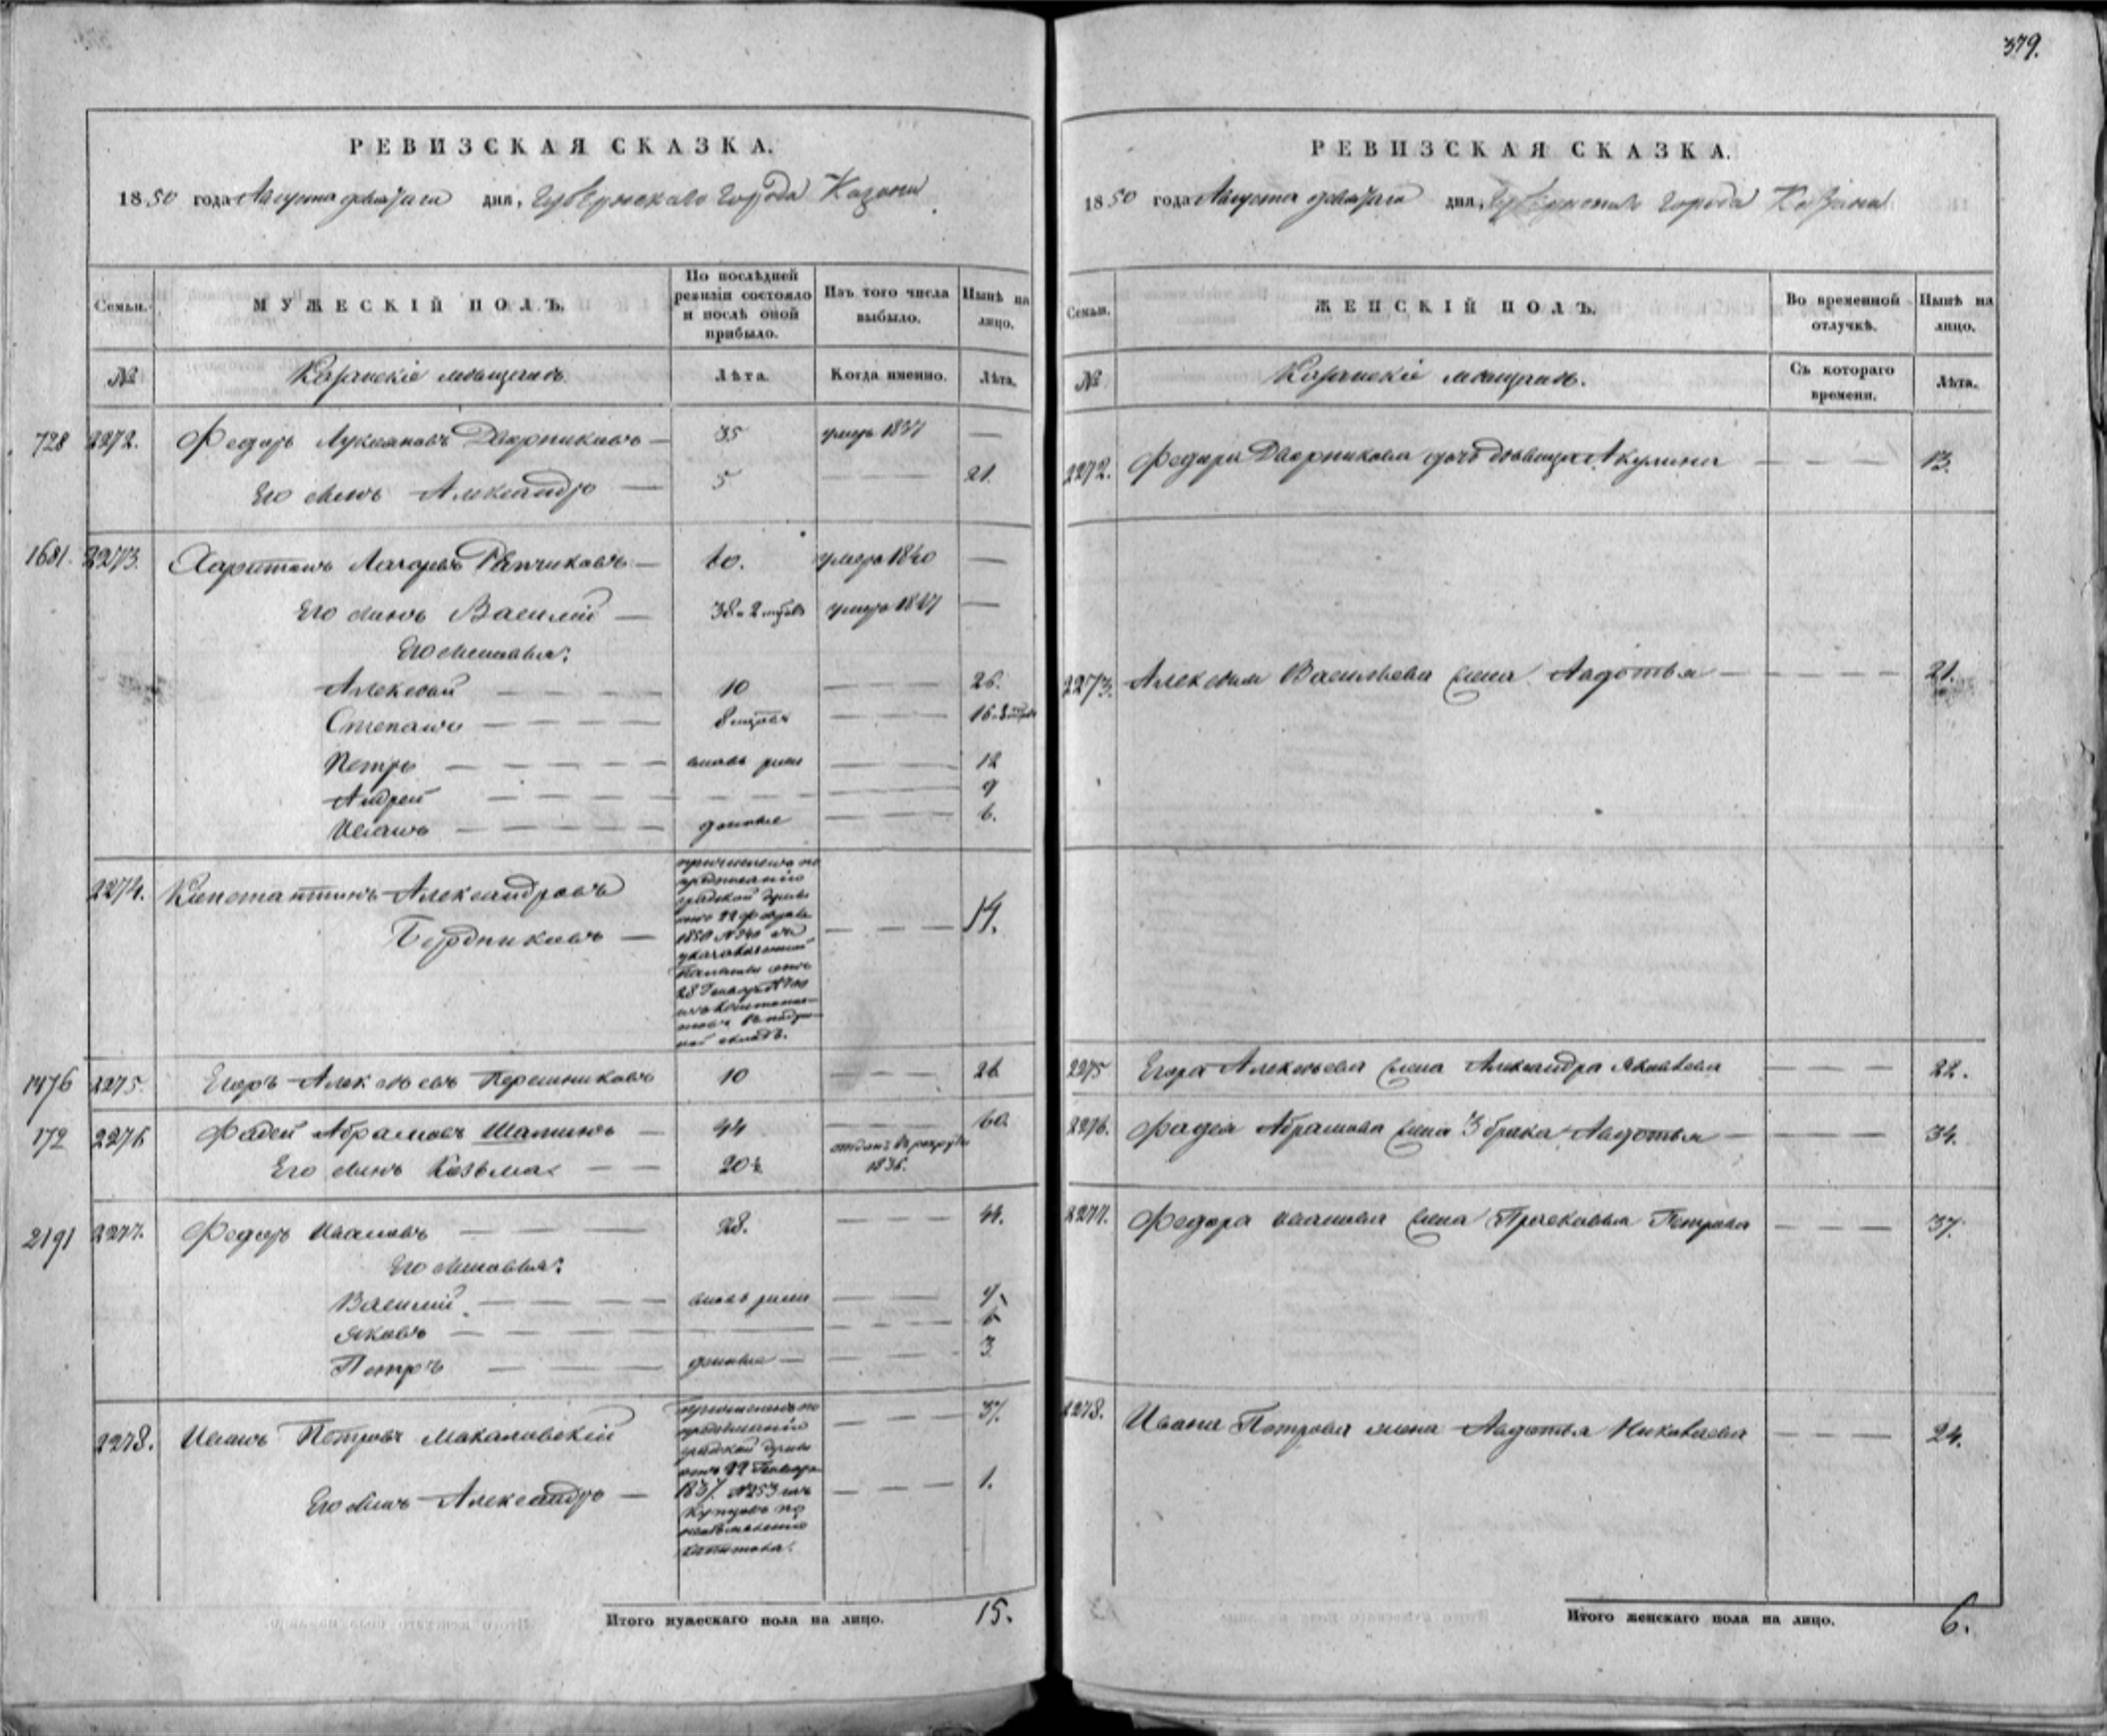 379.
РЕВИЗСКАЯ СКАЗКА.
1850 года Августа девятаго дня, Губернскаго города Казани.
Семьи. МУЖЕСКІЙ ПОЛЪ. По послѣдней ревизіи состояло и послѣ оной прибыло. Изъ того числа выбыло. Нынѣ на лицо.
№ Казанскіе мѣщане Лѣта. Когда именно. Лѣта.
728 2272. Федоръ Лукояновъ Дворниковъ — 35 умеръ 1837 —
Его сынъ Александръ — 5 — — — 21.
1681. 2273. Харитонъ Лазаревъ — 60. умеръ 1840 —
Его сынъ Василій — 38 умеръ 1847 —
Его сыновья:
Алексѣй — — — — 10 — — — 26.
Степанъ — — — — 8 мцовъ — — — 16
Петръ — — — — — вновь рож — — — 12
Андрей — — — — — — — — — 9
Иванъ — — — — — денные — — — 6.
2274. Константинъ Александровъ
Бердниковъ — — — — 14.
причисленъ по
предписанію
градской думы
отъ 22 февраля
1850 №
Палаты отъ
28 Генваря
1476 2275. Егоръ Алексѣевъ Перешниковъ 10 — — — 26
172 2276 Фадей Абрамовъ Шаминъ — 44 — 60.
Его сынъ Козьма — — 20½ отданъ въ рекруты 1836.
2191 2277. Федоръ Ивановъ — — — — 28. — — — 44.
Его сыновья:
Василій — — — — вновь рож — — —
Яковъ — — — — — — — —
Петръ — — — денные — — — — 3
2278. Иванъ Петровъ Макаловскій — — — 37.
Его сынъ Александръ — — — — 1.
причисленъ по
предписанію
градской думы
отъ 22 Генваря
1837. №253 изъ
купцовъ по
необъявленію
капитала.
Итого мужескаго пола на лицо. 15.
РЕВИЗСКАЯ СКАЗКА.
1850 года Августа девятаго дня, Губернскаго города Казани
Семьи. ЖЕНСКІЙ ПОЛЪ. Во временной отлучкѣ. Нынѣ на лицо.
№ Казанскіе мѣщане. Съ котораго времени. Лѣта.
2272. Федора Дворникова дочь дѣвица Акулина — — — 13.
2273. Алексѣя Васильева жена Авдотья — — — — 21.
2275 Егора Алексѣева жена Александра Яковлева — — — 22.
2276. Фадея Абрамова жена 3 брака Авдотья — — — — 34.
2277. Федора Иванова жена Прасковья Петрова — — — 37.
2278. Ивана Петрова жена Авдотья Николаева — — — 24.
Итого женскаго пола на лицо. 6.